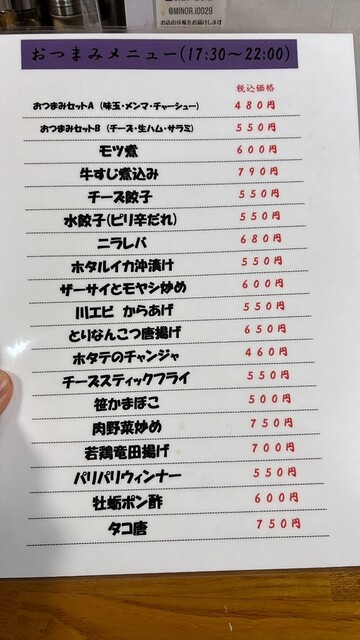 @MINOR.I0029
お店の情報をお届けします
おつまみメニュー(17:30～22:00)
税込価格
おつまみセットA (味玉・メンマ・チャーシュー) 480円
おつまみセットB (チーズ・生ハム・サラミ) 550円
モツ煮 600円
牛すじ煮込み 790円
チーズ餃子 550円
水餃子(ピリ辛だれ) 550円
ニラレバ 680円
ホタルイカ沖漬け 550円
ザーサイとモヤシ炒め 600円
川エビ からあげ 550円
とりなんこつ唐揚げ 650円
ホタテのチャンジャ 460円
チーズスティックフライ 550円
笹かまぼこ 500円
肉野菜炒め 750円
若鶏竜田揚げ 700円
パリパリウィンナー 550円
牡蛎ポン酢 600円
タコ唐 750円